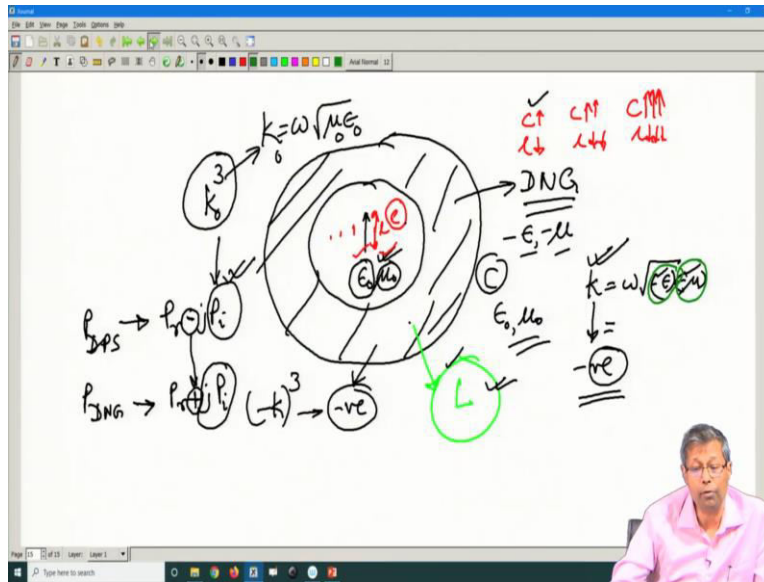 Journal
File Edit View Page Tools Options Help
Arial Normal 12
k₀ = ω√μ₀ε₀
k₀³
C↑ C↑↑ C↑↑↑
l↓ l↓↓ l↓↓↓
DNG
-ε, -μ
l
ε₀ μ₀
C
ε₀, μ₀
k = ω√(-ε)(-μ)
=
-ve
P_DPS → Pr - jPi
P_DNG → Pr + jPi (-k)³ → -ve
L
Page 15 of 15 Layer: Layer 1
Type here to search